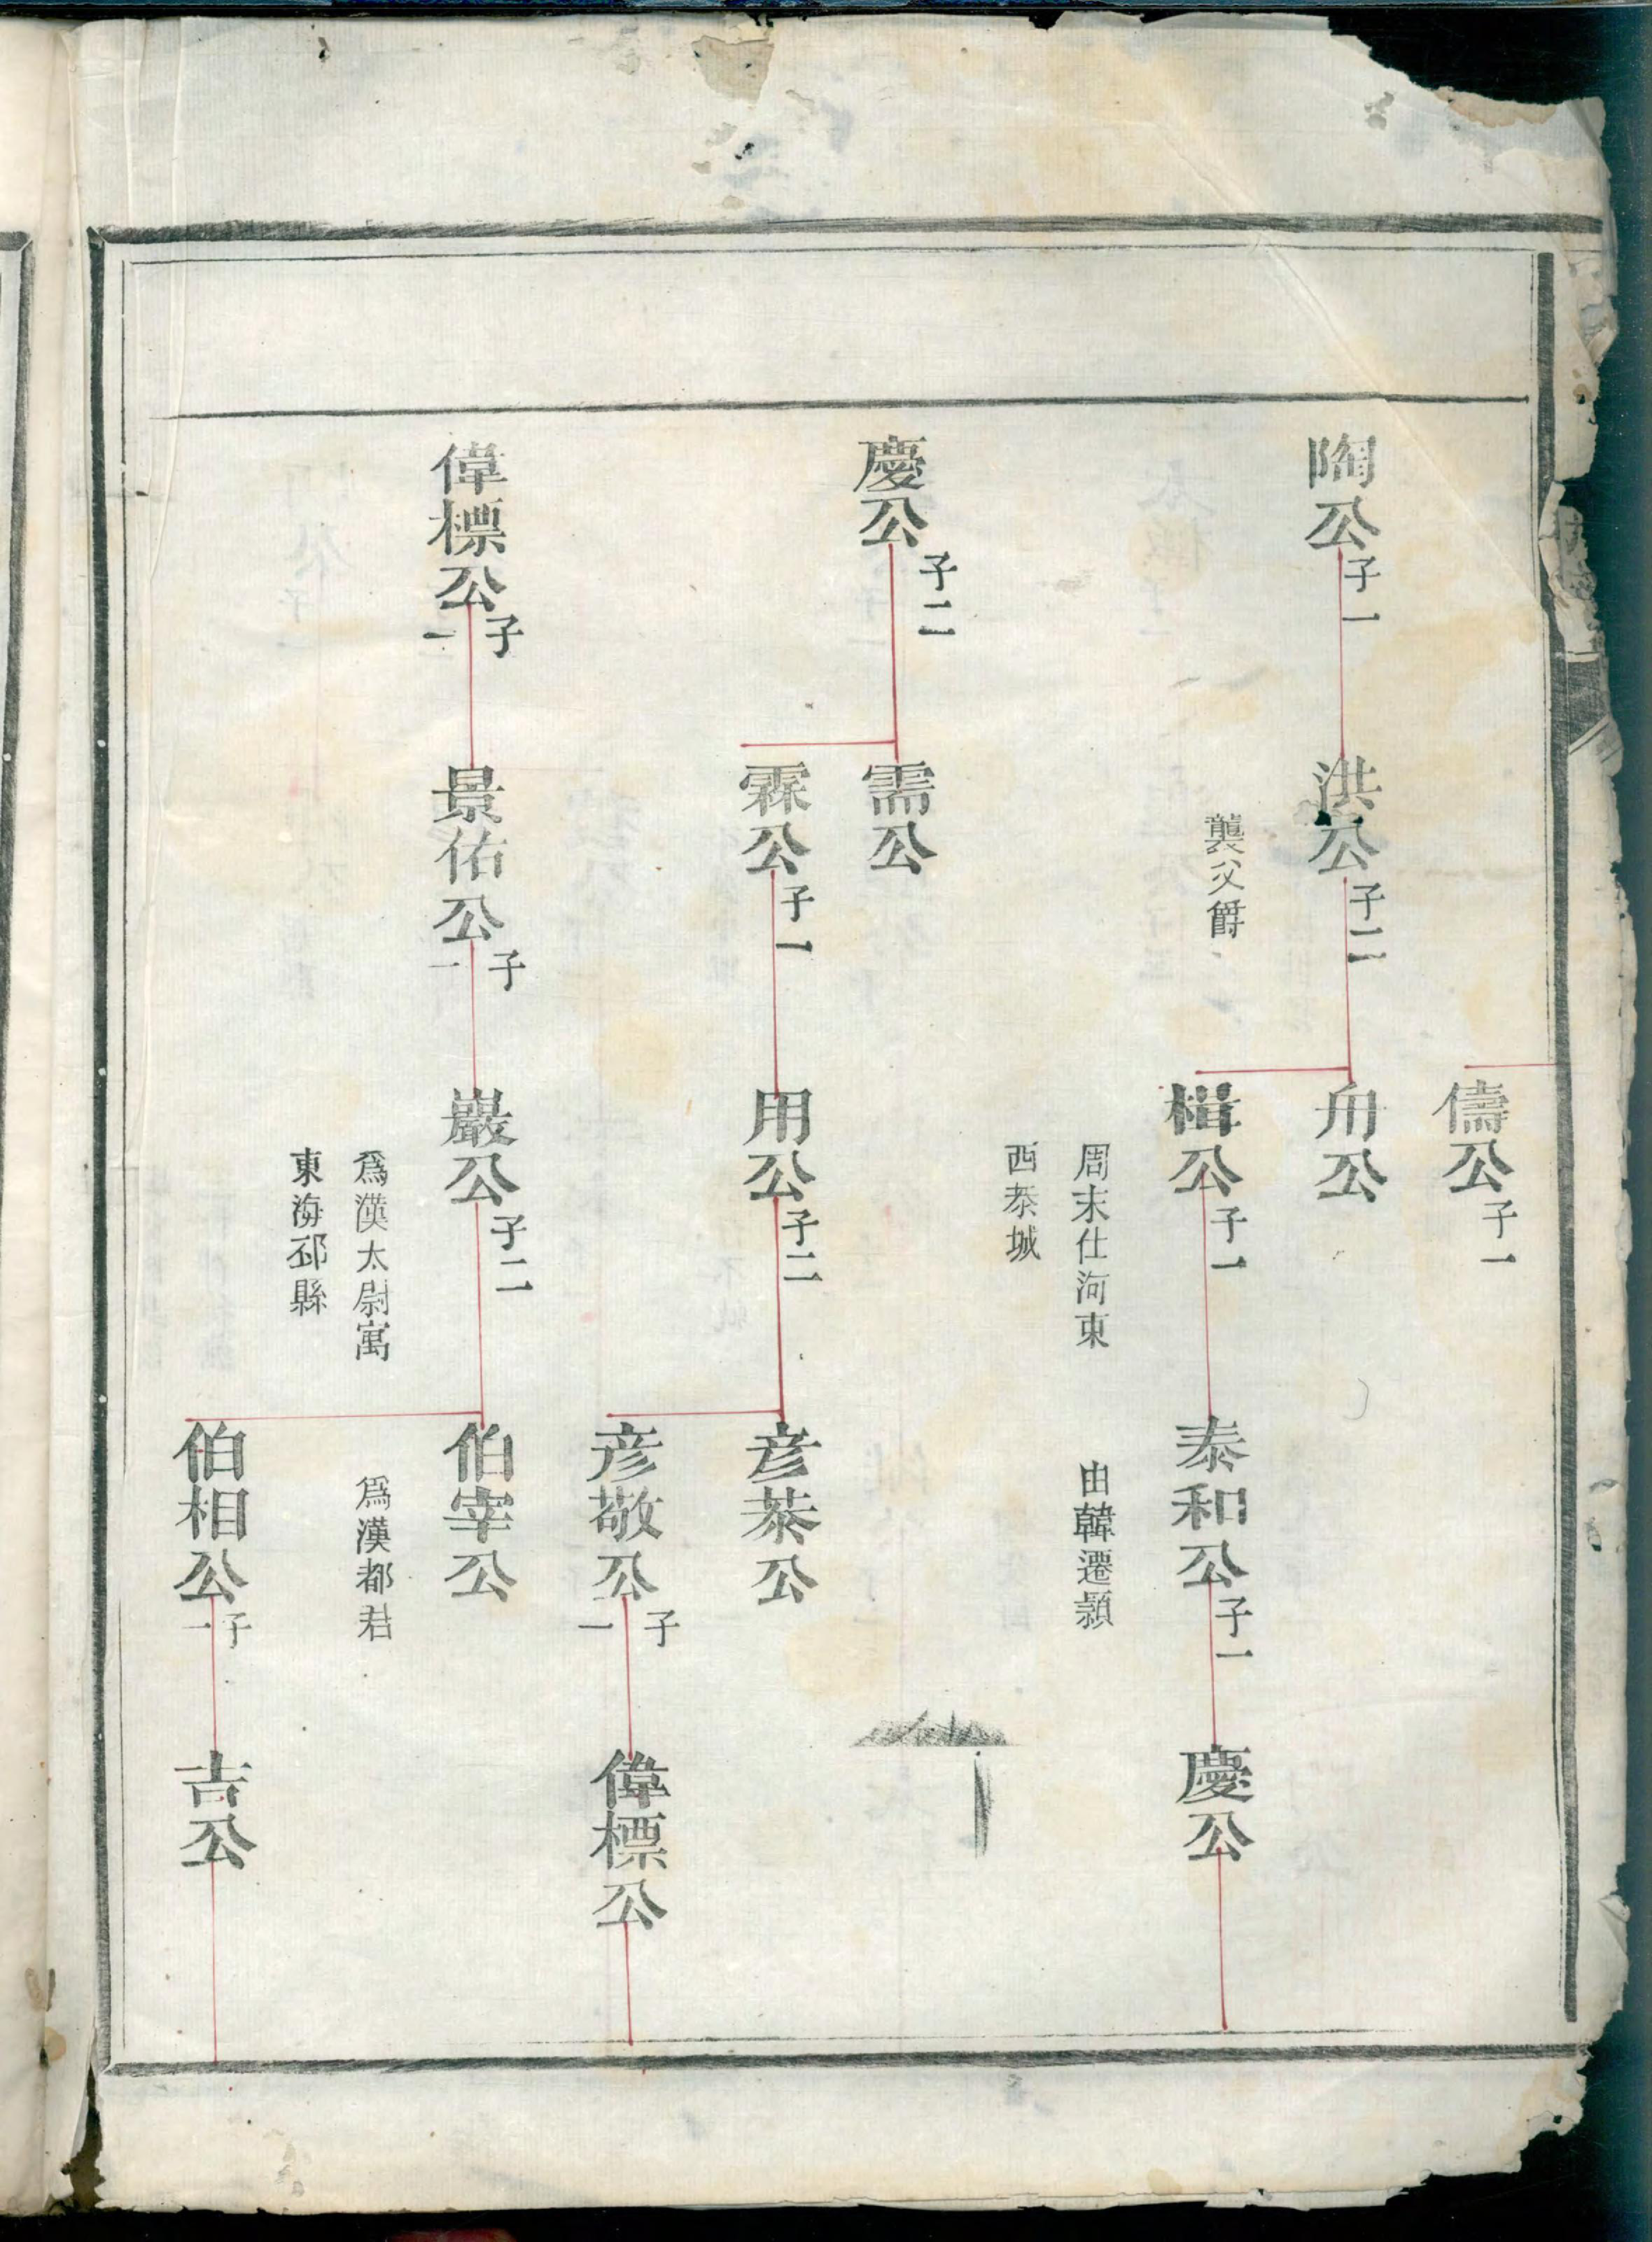 陶公子一
洪公子二
襲父爵
儔公子一
舟公
楫公子一
周末仕河東
西泰城
泰和公子一
由韓遷潁
慶公
慶公子二
需公
霖公子一
用公子二
彦恭公
彦敬公子一
偉標公
偉標公子一
景佑公子一
巖公子二
為漢太尉寓
東海邳縣
伯宰公
為漢都君
伯相公子一
吉公